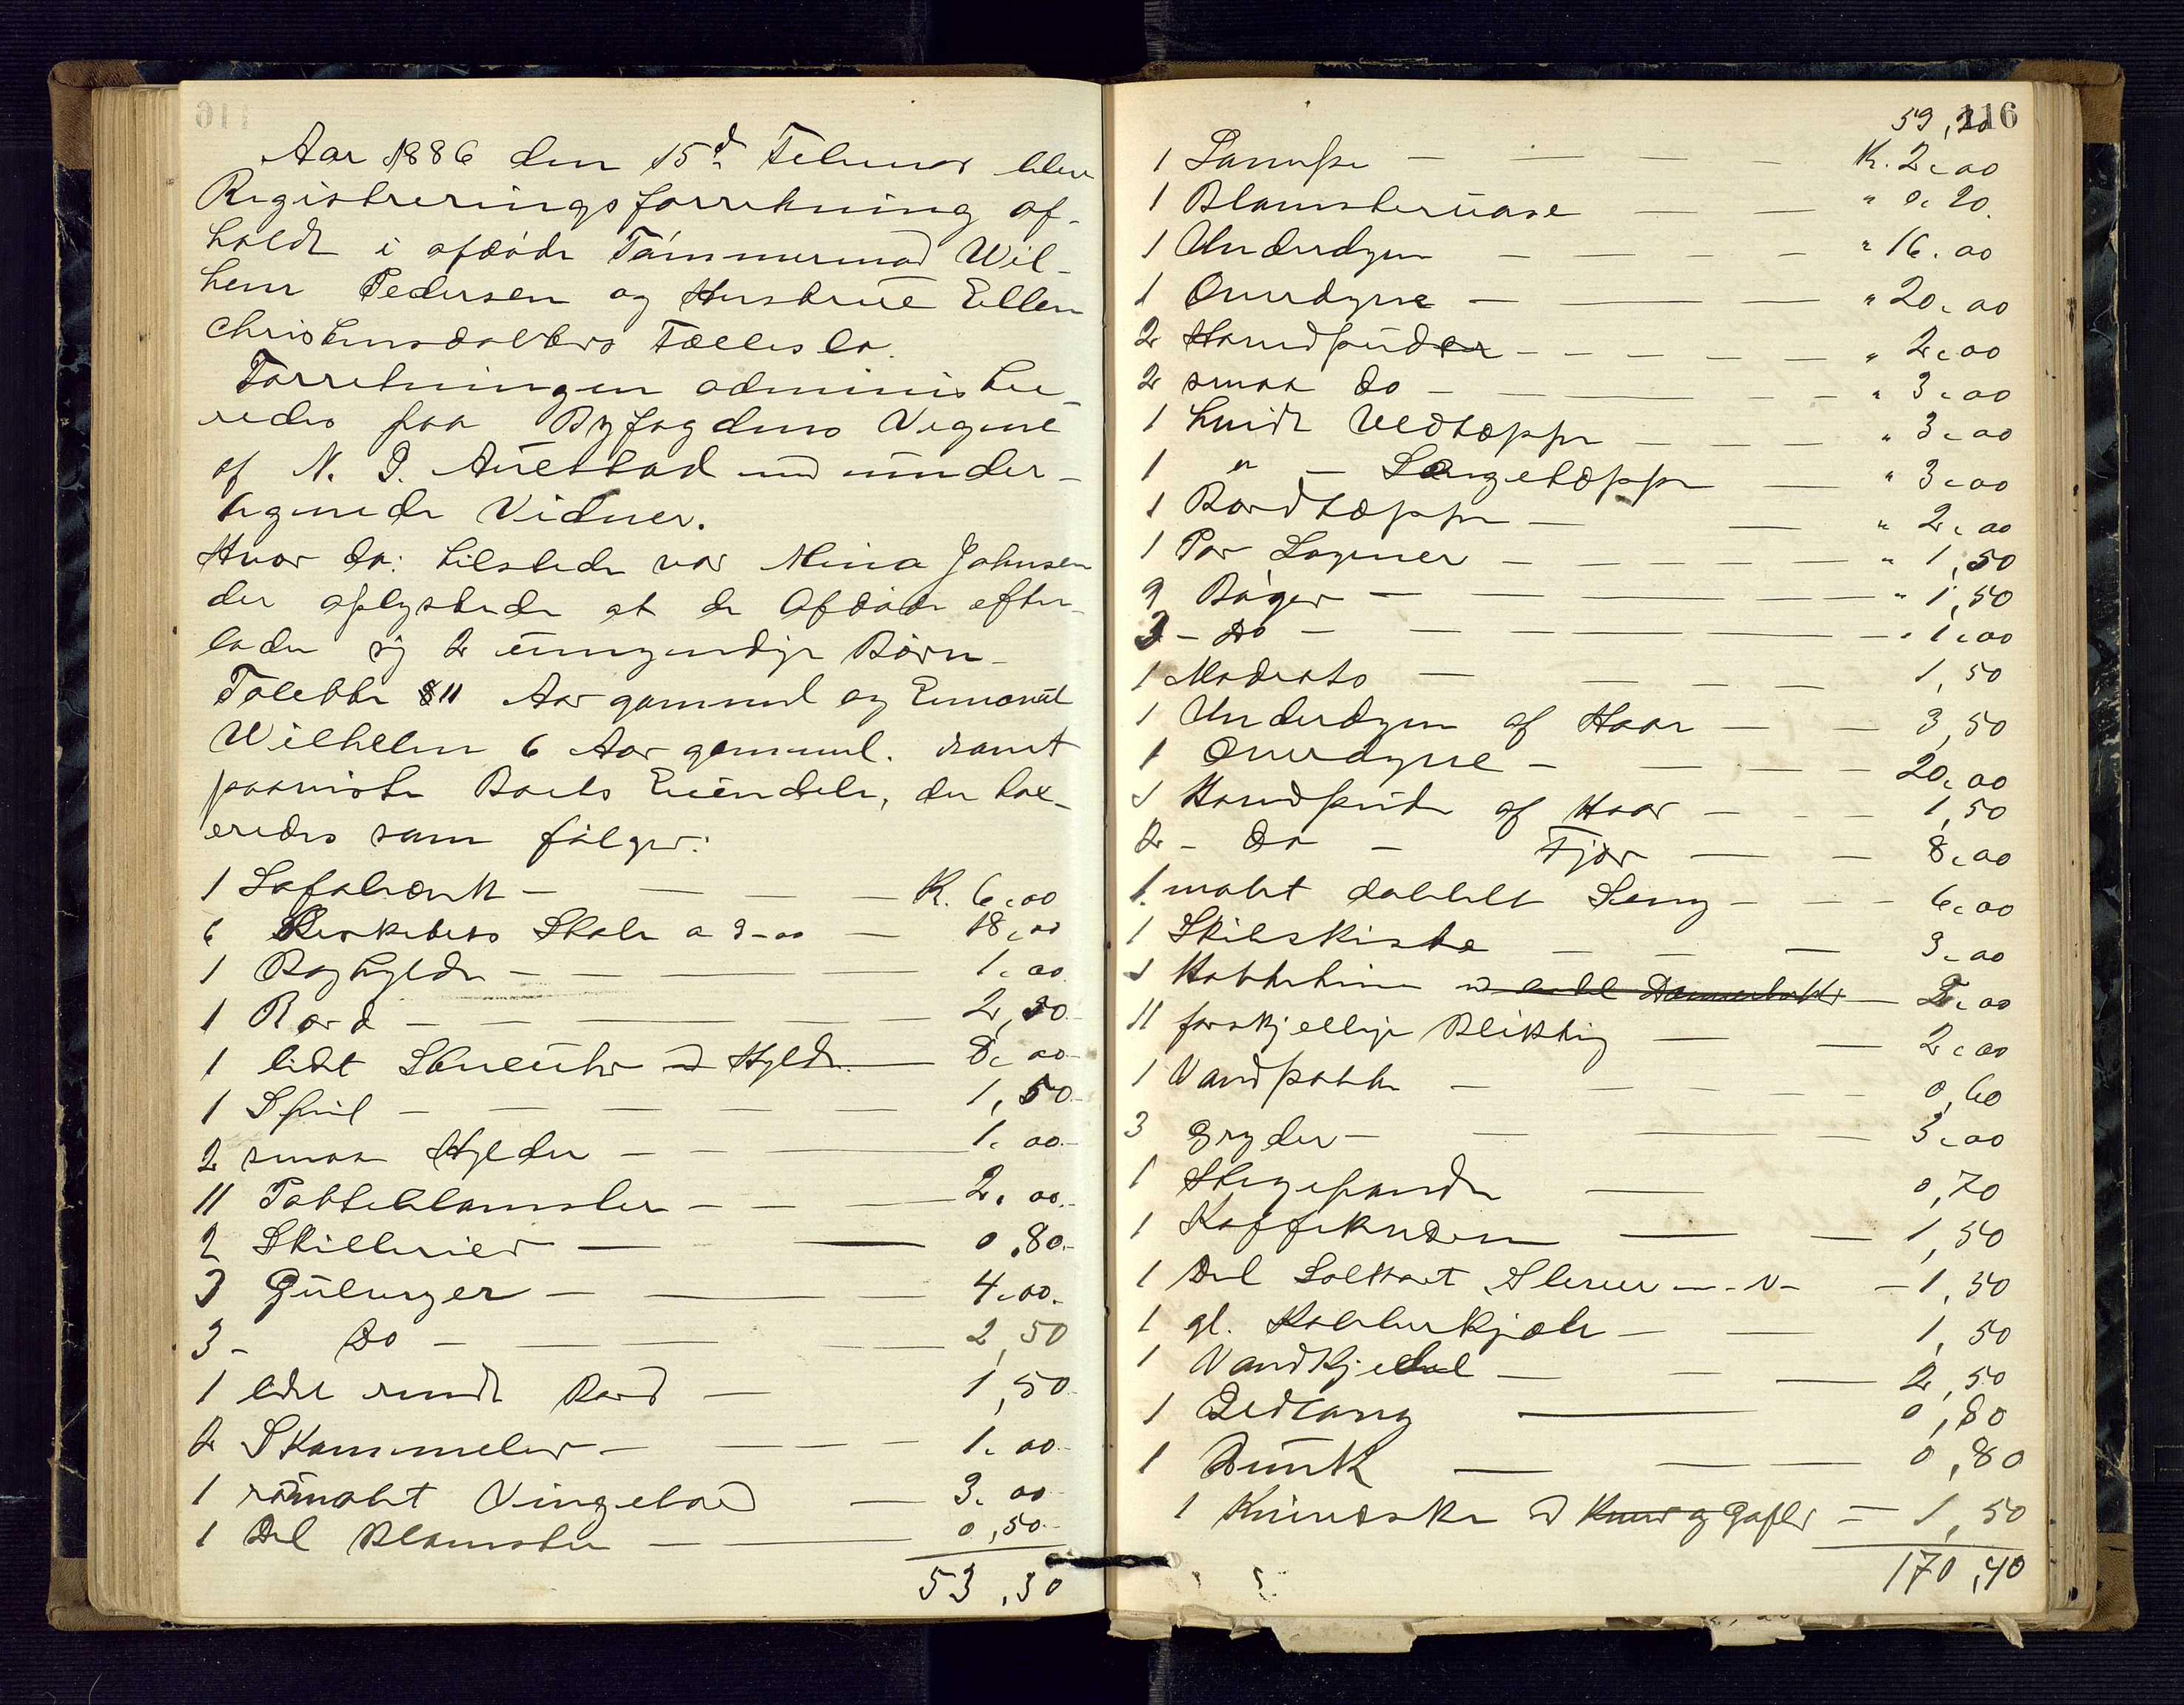 Aar 1886 den 15d Februar blev
Registreringsforretning af-
holdt i afdöde Tömmermd Wil-
helm Pedersen og Hustrue Ellen
Christensdatters Fællesbo.
Forretningen administre-
redes paa Byfogdens Vegne
af N. J. Auestad md under-
tegnede Vidner.
Hvor da: tilstede var Mina Johnsen
der oplystede at de Afdöde efter-
lader sig 2 umyndige Börn
Tolette 11 Aar gammel og Emanuel
Wilhelm 6 Aar gammel. samt
paaviste Boets Eiendele, der tax-
eredes som fölger:
1 Sofabænk — K. 6,00
6 Birkebets Stole a 3-00 — 18,00
1 Boghylde — 1,00
1 Bord — 2,50
1 lidt Stueuhr md Hylde — 8,00
1 Speil — 1,50
2 smaa Hylder — 1,00
11 Potteblomster — 2,00
2 Skillerier — 0,80
3 Gulvtæger — 4,00
3 - Do — 2,50
1 lidt rundt Bord — 1,50
2 Skammeler — 1,00
1 römalet Vingebord — 3,00
1 Del Blomster — 0,50
53,30
116
53,30
1 Lampe — K. 2,00
1 Blomstervase — " 0,20
1 Underdyne — " 16,00
1 Overdyne — " 20,00
2 Hovedpuder — " 2,00
2 smaa do — " 3,00
1 hvidt Vedtæppe — " 3,00
1 " - Sengetæppe — " 3,00
1 Bordtæppe — " 2,00
1 Par Lagener — " 1,50
9 Böger — " 1,50
3 - Do — " 1,00
1 Madrats — 1,50
1 Underdyne af Haar — 3,50
1 Overdyne — 20,00
1 Hovedpude af Haar — 1,50
2 - Do - Fjær — 8,00
1 malet dobbelt Seng — 6,00
1 Skibskiste — 3,00
11 forskjellige Bliktöj — 2,00
1 Vandpotte — 0,60
3 Gryder — 3,00
1 Stegepande — 0,70
1 Kaffekværn — 1,50
1 Del — 1,50
1 gl. Kobberkjæle — 1,50
1 Vandkjedel — 2,50
1 Ildtang — 0,80
1 Dunk — 0,80
1 md Knive og Gafler — 1,50
170,40